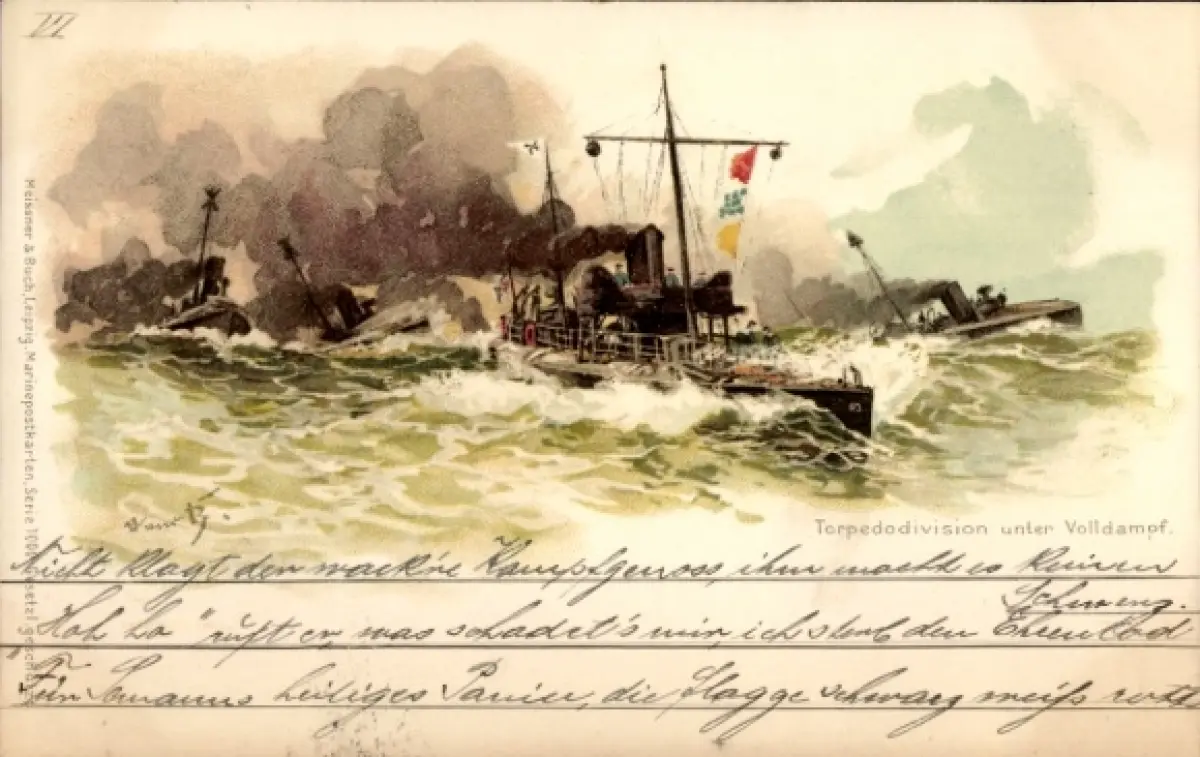 VI
Meissner & Buch, Leipzig, Marinepostkarten, Serie 100
Torpedodivision unter Volldampf.
Nicht klagt der wack're Kampfgenoss, ihm macht es keinen
Schmerz.
"Hoh ho" ruft er, was schadet's mir, ich sterb den Ehrentod
Für heiliges Panier, die Flagge schwarz weiß roth